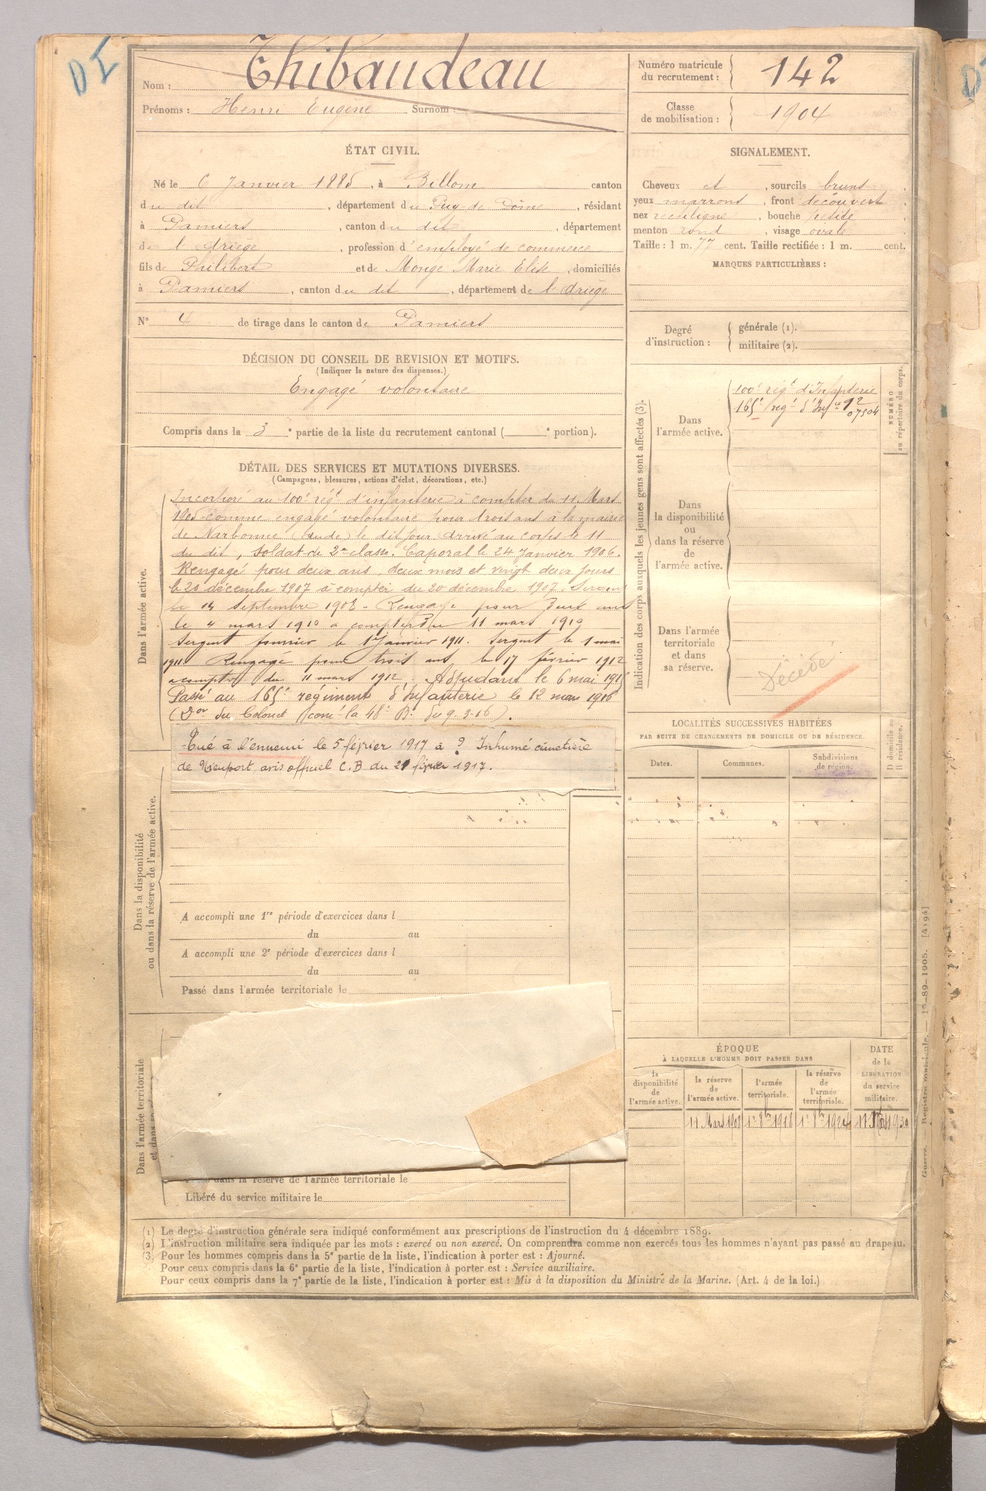 DI
Nom : Thibaudeau
Prénoms : Henri Eugène Surnom :
Numéro matricule du recrutement : 142
Classe de mobilisation : 1904
ÉTAT CIVIL.
Né le 6 Janvier 1885, à Billom canton
du dit, département du Puy-de-Dôme, résidant
à Pamiers, canton du dit, département
de l'Ariège, profession d'employé de commerce
fils de Philibert et de Monge Marie Elise, domiciliés
à Pamiers, canton du dit, département de l'Ariège
N° 4 de tirage dans le canton de Pamiers
SIGNALEMENT.
Cheveux et, sourcils bruns,
yeux marrons, front découvert
nez rectiligne, bouche petite
menton rond, visage ovale
Taille : 1 m. 77 cent. Taille rectifiée : 1 m. cent.
MARQUES PARTICULIÈRES :
Degré d'instruction : générale (1).
militaire (2).
DÉCISION DU CONSEIL DE REVISION ET MOTIFS.
(Indiquer la nature des dispenses.)
Engagé volontaire
Compris dans la 3e partie de la liste du recrutement cantonal ( e portion).
DÉTAIL DES SERVICES ET MUTATIONS DIVERSES.
(Campagnes, blessures, actions d'éclat, décorations, etc.)
Dans l'armée active.
Incorporé au 100e régt d'infanterie à compter du 11 Mars
1905 comme engagé volontaire pour trois ans à la mairie
de Narbonne (Aude) le dit jour. Arrivé au corps le 11
du dit, soldat de 2e classe. Caporal le 24 Janvier 1906.
Rengagé pour deux ans, deux mois et vingt deux jours
le 20 décembre 1907 à compter du 20 décembre 1907. Sergent
le 14 Septembre 1908 - Rengagé pour deux ans
le 4 mars 1910 à compter du 11 mars 1910
Sergent fourrier le 1er Janvier 1911. Sergent le 1 mai
1911 Rengagé pour trois ans le 17 février 1912
à compter du 11 mars 1912. Adjudant le 6 mai 1915
Passé au 165e régiment d'Infanterie le 12 mars 1916
(Don du Colonel Comt la 48e Be du 9-3-16).
Tué à l'ennemi le 5 février 1917 à ? Inhumé cimetière
de Nieuport avis officiel C.B du 21 février 1917.
Indication des corps auxquels les jeunes gens sont affectés (3).
Dans l'armée active.
100e régt d'Infanterie
165e régt d'Infie
07504
NUMÉRO au répertoire du corps.
Dans la disponibilité ou dans la réserve de l'armée active.
Dans l'armée territoriale et dans sa réserve.
Décédé
LOCALITÉS SUCCESSIVES HABITÉES
PAR SUITE DE CHANGEMENTS DE DOMICILE OU DE RÉSIDENCE.
Dates. Communes. Subdivisions de région. D domicile ou R résidence.
Dans la disponibilité ou dans la réserve de l'armée active.
A accompli une 1re période d'exercices dans l
du au
A accompli une 2e période d'exercices dans l
du au
Passé dans l'armée territoriale le
Dans l'armée territoriale
la réserve de l'armée territoriale le
Libéré du service militaire le
ÉPOQUE
À LAQUELLE L'HOMME DOIT PASSER DANS
la disponibilité de l'armée active. la réserve de l'armée active. l'armée territoriale. la réserve de l'armée territoriale.
DATE de la LIBÉRATION du service militaire.
11 Mars 1908 1er 8bre 1918 1er 8bre 1924
(1) Le degré d'instruction générale sera indiqué conformément aux prescriptions de l'instruction du 4 décembre 1889.
(2) L'instruction militaire sera indiquée par les mots : exercé ou non exercé. On comprendra comme non exercés tous les hommes n'ayant pas passé au drapeau.
(3) Pour les hommes compris dans la 5e partie de la liste, l'indication à porter est : Ajourné.
Pour ceux compris dans la 6e partie de la liste, l'indication à porter est : Service auxiliaire.
Pour ceux compris dans la 7e partie de la liste, l'indication à porter est : Mis à la disposition du Ministre de la Marine. (Art. 4 de la loi.)